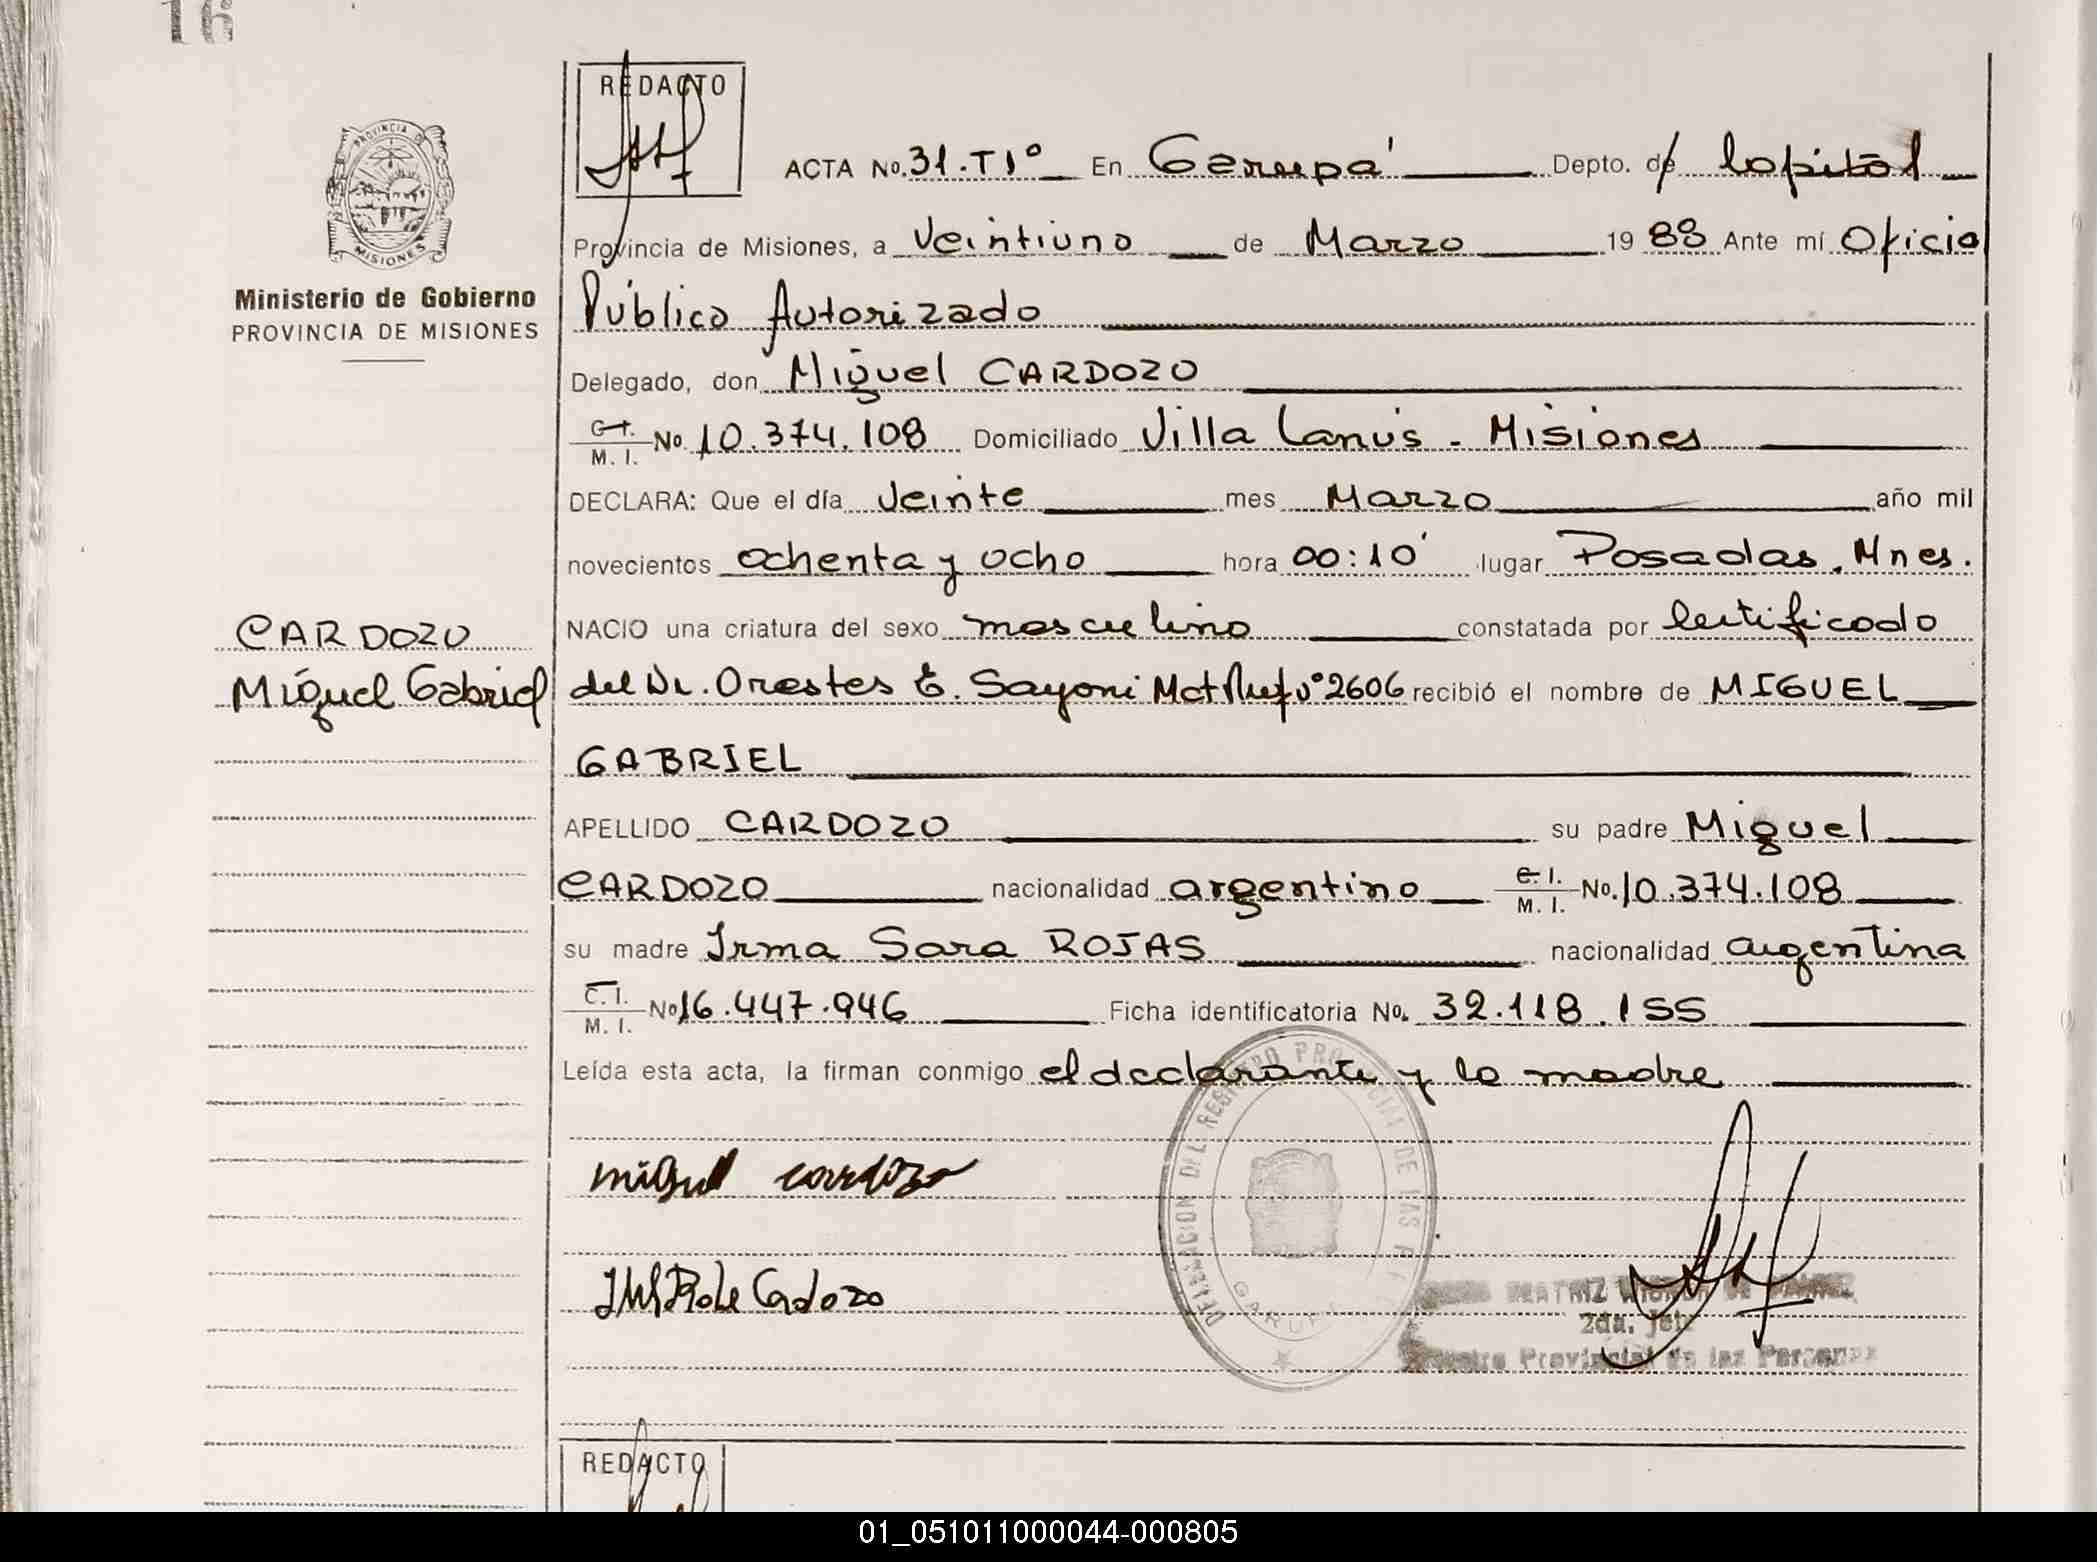 16
REDACTO
ACTA No. 31. Tº Iº En Garupá Depto. de Capital
Provincia de Misiones, a Veintiuno de Marzo 1988 Ante mí Oficio
Público Autorizado
PROVINCIA DE
MISIONES
Ministerio de Gobierno
PROVINCIA DE MISIONES
Delegado, don Miguel CARDOZO
C. I.
M. I. No. 10.374.108 Domiciliado Villa Lanús - Misiones
DECLARA: Que el día Veinte mes Marzo año mil
novecientos ochenta y ocho hora 00:10' lugar Posadas. Mnes.
CARDOZO
Miguel Gabriel
NACIO una criatura del sexo masculino constatada por Certificado
del Dr. Orestes E. Sayoni Mat Nº 2606 recibió el nombre de MIGUEL
GABRIEL
APELLIDO CARDOZO su padre Miguel
CARDOZO nacionalidad argentino C. I.
M. I. No. 10.374.108
su madre Irma Sara ROJAS nacionalidad argentina
C. I.
M. I. No 16.447.946 Ficha identificatoria No. 32.118.155
Leída esta acta, la firman conmigo el declarante y la madre
DELEGACION DEL REGISTRO PROVINCIAL DE LAS
GARUPA
miguel cardozo
Cardozo
BEATRIZ
2da. Jefe
Registro Provincial de las Personas
REDACTO
01_051011000044-000805